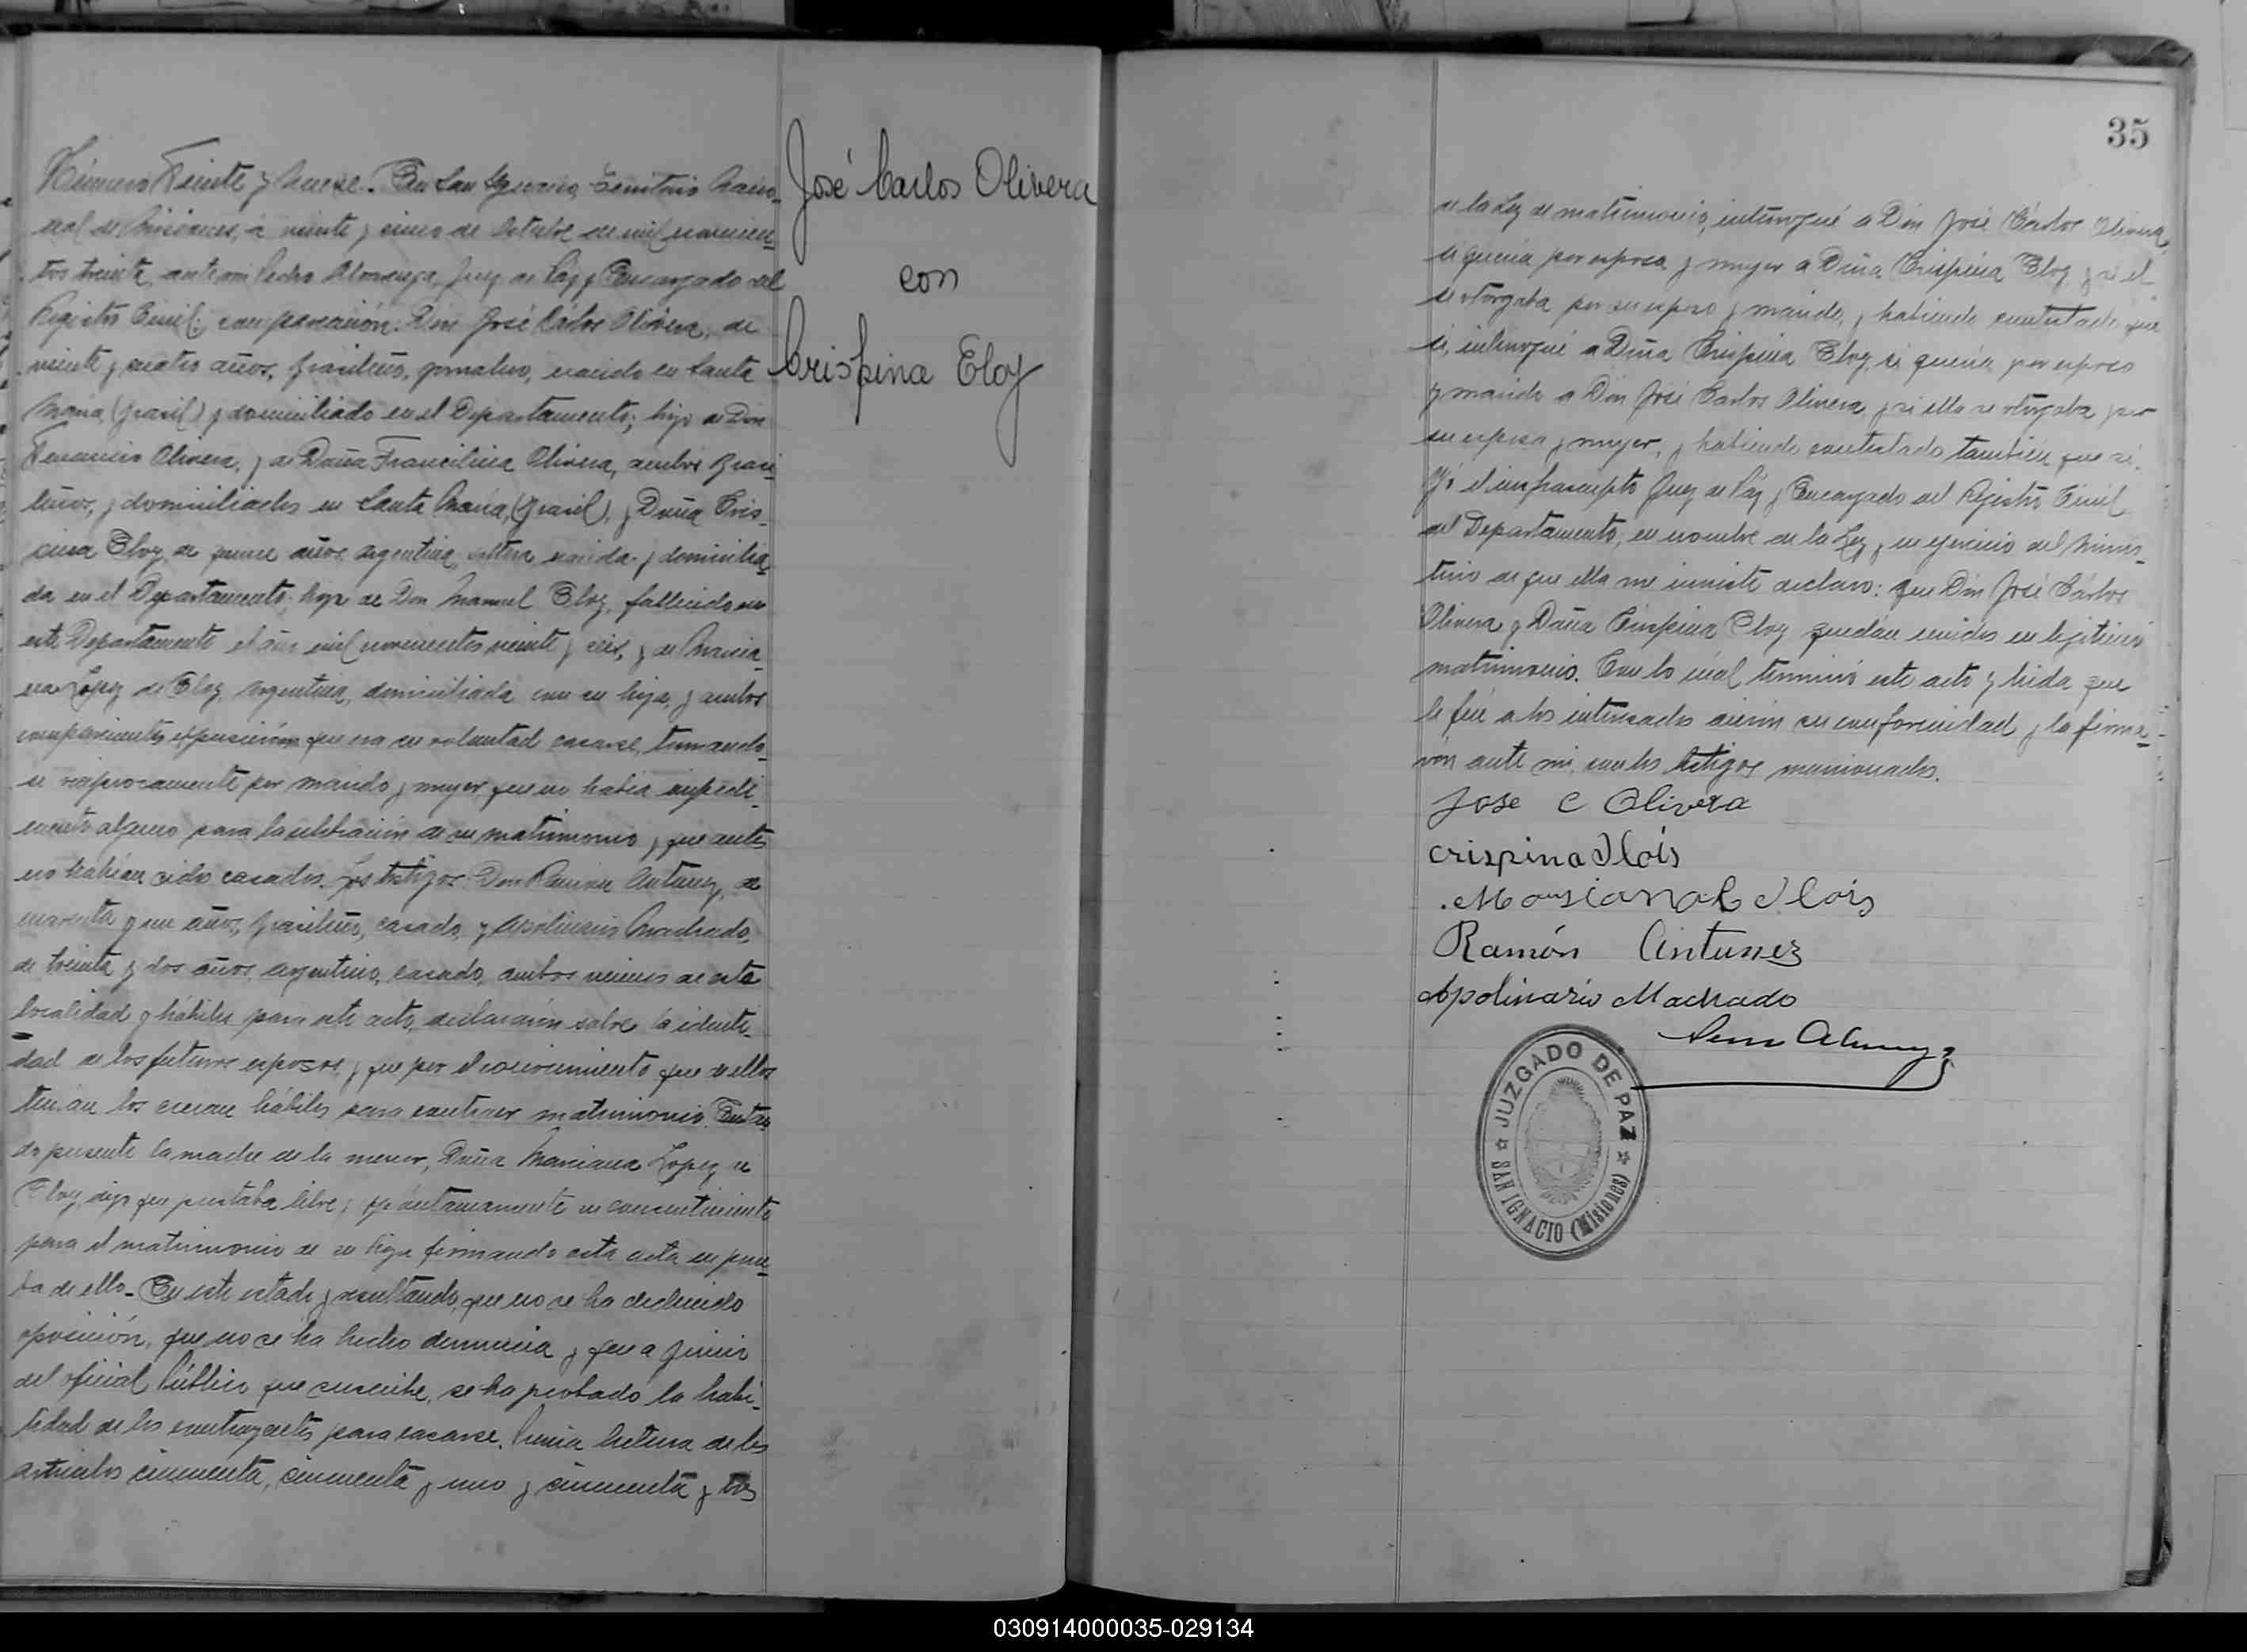 Número Treinta y nueve. En San Ignacio, Territorio Nacio-
nal de Misiones, à veinte y cinco de Octubre de mil novecien-
tos treinta, ante mi Pedro Alvarenga, Juez de Paz y Encargado del
Registro Civil; comparecieron: Don José Cárlos Olivera, de
veinte y cuatro años, brasileño, jornalero, nacido en Santa
María (Brasil) y domiciliado en el Departamento; hijo de Don
Venancio Olivera, y de Doña Francilina Olivera, ambos brasi-
leños, y domiciliados en Santa María, (Brasil), y Doña Cris-
pina Eloy, de quince años, argentina, soltera, nacida y domicilia-
da en el Departamento; hija de Don Manuel Eloy, fallecido en
este Departamento el año mil novecientos veinte y seis, y de Marcia-
na Lopez de Eloy, argentina, domiciliada con su hija, y ambos
comparecientes expusieron que era su voluntad casarse, tomando-
se reciprocamente por marido y mujer, que no habia impedi-
mento alguno para la celebración de su matrimonio y que antes
no habian sido casados. Los testigos: Don Ramón Antunez, de
cuarenta y un años, brasileño, casado, y Apolinario Machado,
de treinta y dos años, argentino, casado, ambos vecinos de esta
localidad y hábiles para este acto, declararon sobre la identi-
dad de los futuros esposos, y que por el conocimiento que de ellos
tenian los creian hábiles para contraer matrimonio. Estan-
do presente la madre de la menor, Doña Marciana Lopez de
Eloy, dijo que prestaba libre y espóntaneamente su consentimiento
para el matrimonio de su hija firmando esta acta en prue-
ba de ello. En este estado y resultando, que no se ha deducido
oposición, que no se ha hecho denuncia y que a juicio
del oficial Público que suscribe, se ha probado la habi-
lidad de los contrayentes para casarse. Previa lectura de los
articulos cincuenta, cincuenta y uno y cincuenta y tres
José Carlos Olivera
con
Crispina Eloy
35
de la Ley de matrimonio, interrogué a Don José Cárlos Olivera,
si queria por esposa y mujer a Doña Crispina Eloy, y si el
se otorgaba por su esposo y marido, y habiendo contestado que
si, interrogué a Doña Crispina Eloy, si queria por esposo
y marido a Don José Carlos Olivera, y si ella se otorgaba por
su esposa y mujer, y habiendo contestado tambien que si.
Yó el infrascripto Juez de Paz y Encargado del Registro Civil
del Departamento, en nombre de la Ley y en ejercicio del minis-
terio de que ella me inviste declaro: que Don José Cárlos
Olivera y Doña Crispina Eloy quedan unidos en legitimo
matrimonio. Con lo cual terminó este acto y leida que
le fué a los interesados dieron su conformidad y la firma-
ron ante mi, con los testigos mencionados.
Jose C Olivera
crispina Ilois
Ramón Antunez
Apolinario Machado
JUZGADO DE PAZ
SAN IGNACIO (Misiones)
030914000035-029134